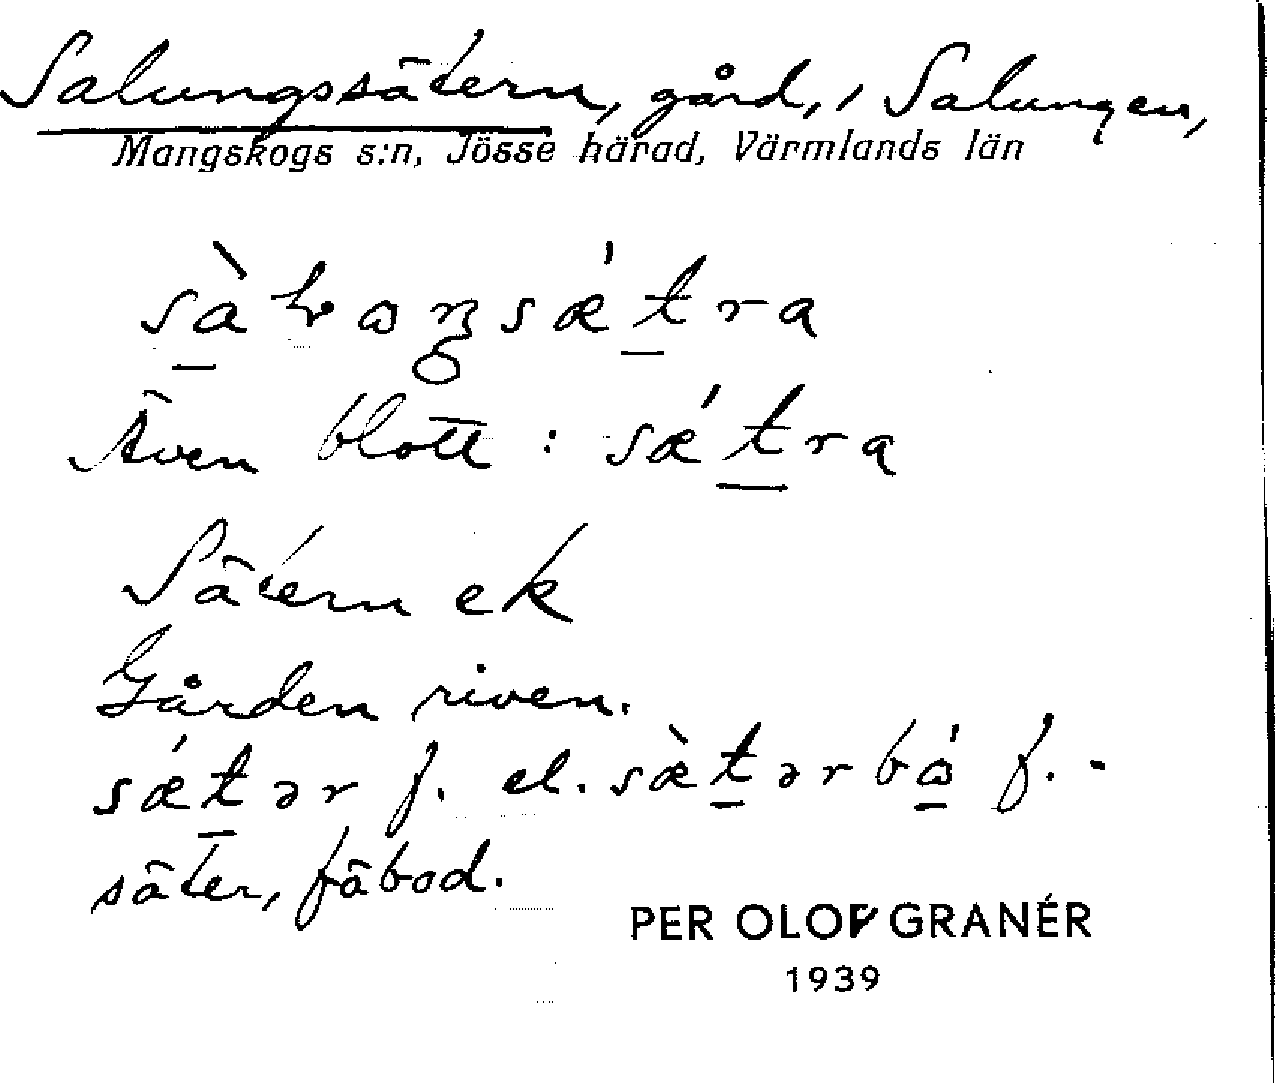 Salungssätern, gård, i Salungen,
Mangskogs s:n, Jösse härad, Värmlands län
Även blott : sǽt̠ra
Sätern ek
Gården riven.
sǽt̠ər f. el. sæ̀t̠ərbɷ̠́ f. -
säter, fäbod.
PER OLOF GRANÉR
1939